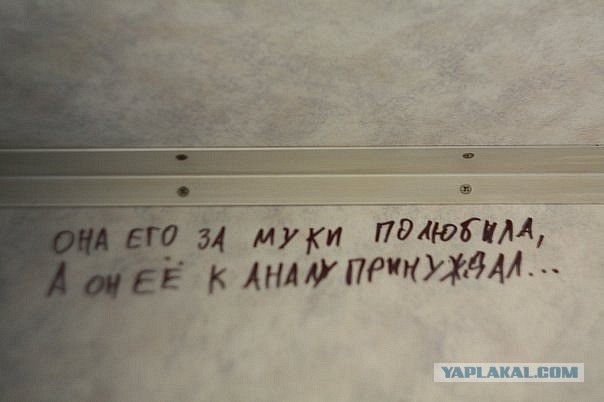 ОНА ЕГО ЗА МУКИ ПОЛЮБИЛА,
А ОН ЕЁ К АНАЛУ ПРИНУЖДАЛ...
YAPLAKAL.COM